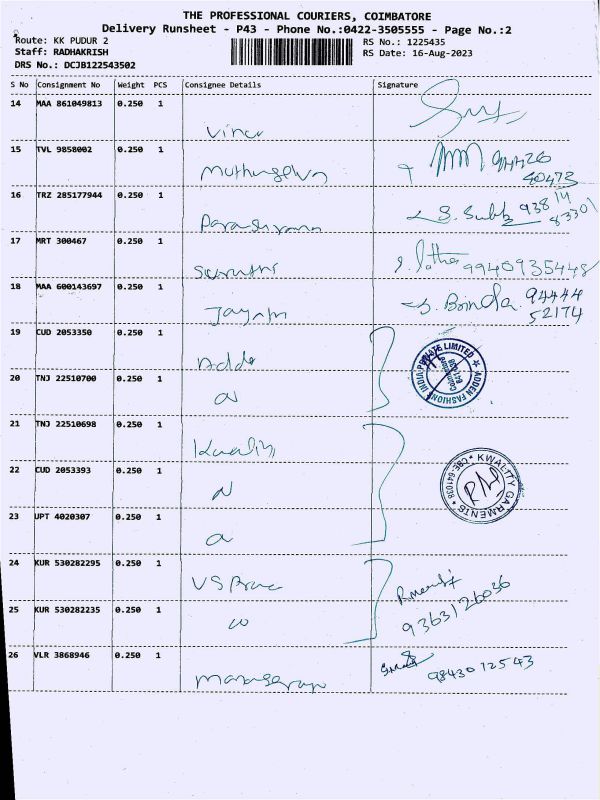 THE PROFESSIONAL COURIERS, COIMBATORE
Delivery Runsheet - P43 - Phone No.:0422-3505555 - Page No.:2
Route: KK PUDUR 2
RS No.: 1225435
Staff: RADHAKRISH
RS Date: 16-Aug-2023
DRS No.: DCJB122543502
S No Consignment No Weight PCS Consignee Details Signature
14 MAA 861049813 0.250 1
15 TVL 9858002 0.250 1 94426
40473
16 TRZ 285177944 0.250 1 93814
83301
17 MRT 300467 0.250 1 9940935448
18 MAA 600143697 0.250 1 Jayam S. Brinda 94444
52174
19 CUD 2053350 0.250 1
ADDEN FASHION INDIA PRIVATE LIMITED
Coimbatore
641 038
20 TNJ 22510700 0.250 1
21 TNJ 22510698 0.250 1
22 CUD 2053393 0.250 1
KWALITY GARMENTS
CBE-641038
23 UPT 4020307 0.250 1
24 KUR 530282295 0.250 1
9363126036
25 KUR 530282235 0.250 1
26 VLR 3868946 0.250 1 9843012543